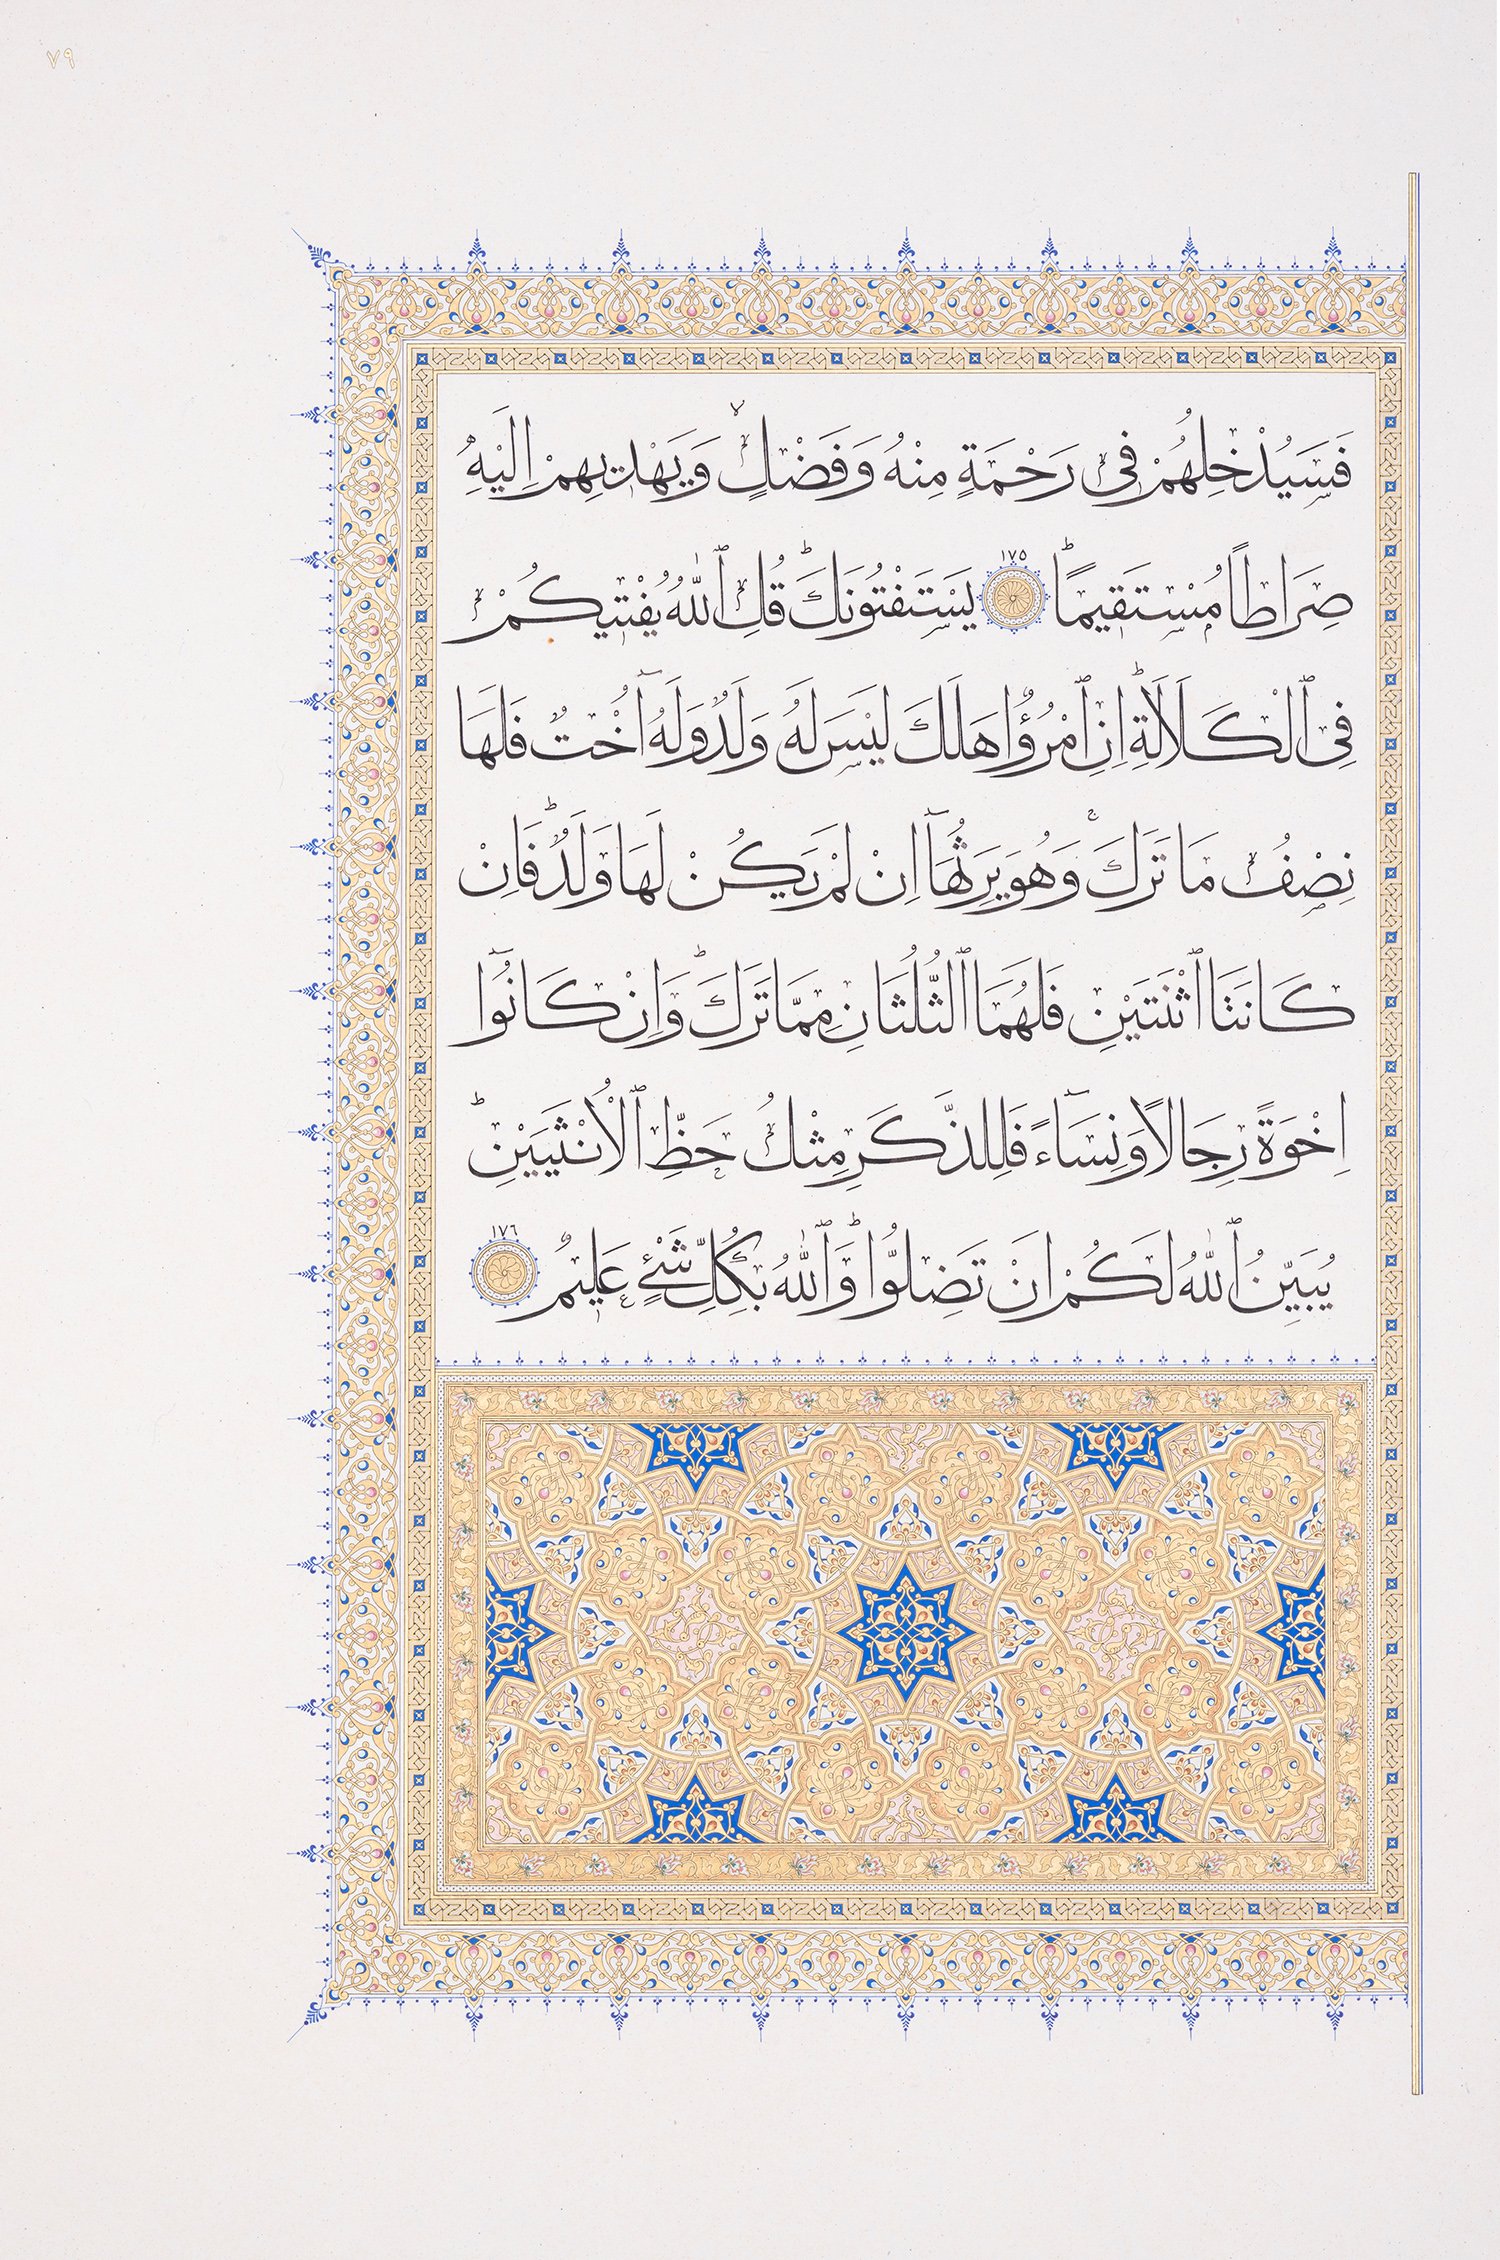 ٧٩
فَسَيُدْخِلُهُمْ فٖي رَحْمَةٍ مِنْهُ وَفَضْلٍۙ وَيَهْدٖيهِمْ اِلَيْهِ
صِرَاطاً مُسْتَقٖيماًؕ ١٧٥ يَسْتَفْتُونَكَؕ قُلِ ٱللّٰهُ يُفْتٖيكُمْ
فِي ٱلْكَلَالَةِؕ اِنِ ٱمْرُؤٌا هَلَكَ لَيْسَ لَهُ وَلَدٌ وَلَهُٓ اُخْتٌ فَلَهَا
نِصْفُ مَا تَرَكَۚ وَهُوَ يَرِثُهَٓا اِنْ لَمْ يَكُنْ لَهَا وَلَدٌؕ فَاِنْ
كَانَتَا ٱثْنَتَيْنِ فَلَهُمَا ٱلثُّلُثَانِ مِمَّا تَرَكَؕ وَاِنْ كَانُٓوا
اِخْوَةً رِجَالاً وَنِسَٓاءً فَلِلذَّكَرِ مِثْلُ حَظِّ ٱلْاُنْثَيَيْنِؕ
يُبَيِّنُ ٱللّٰهُ لَكُمْ اَنْ تَضِلُّواؕ وَٱللّٰهُ بِكُلِّ شَيْءٍ عَلٖيمٌ ١٧٦